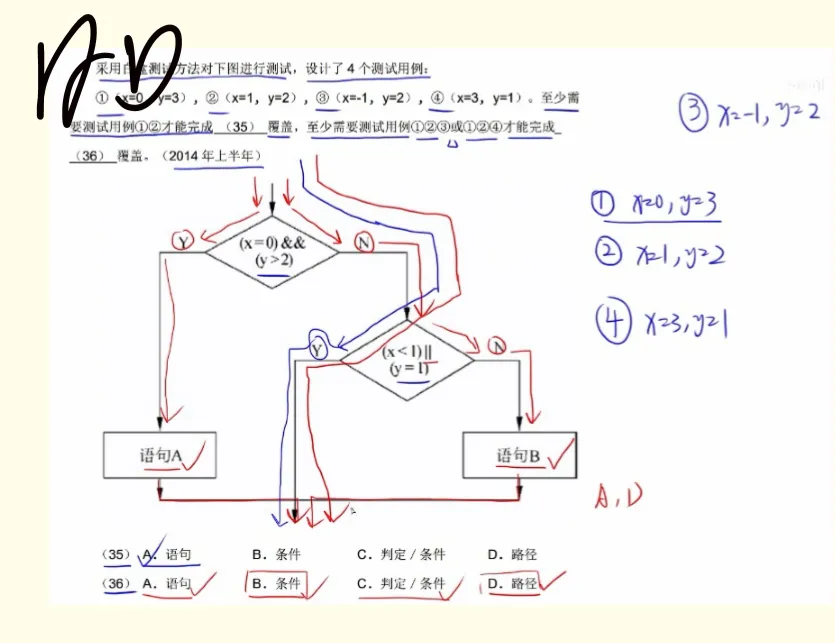 AD
采用白盒测试方法对下图进行测试,设计了 4 个测试用例:
①(x=0,y=3),②(x=1,y=2),③(x=-1,y=2),④(x=3,y=1)。至少需
要测试用例①②才能完成 (35) 覆盖,至少需要测试用例①②③或①②④才能完成
(36) 覆盖。(2014 年上半年)
③ x=-1, y=2
① x=0, y=3
② x=1, y=2
④ x=3, y=1
Y
(x=0) &&
(y>2)
N
Y
(x<1) ||
(y=1)
N
语句A
语句B
A, D
(35) A. 语句 B. 条件 C. 判定/条件 D. 路径
(36) A. 语句 B. 条件 C. 判定/条件 D. 路径